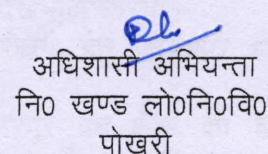 अधिशासी अभियन्ता
नि0 खण्ड लो0नि0वि0
पोखरी